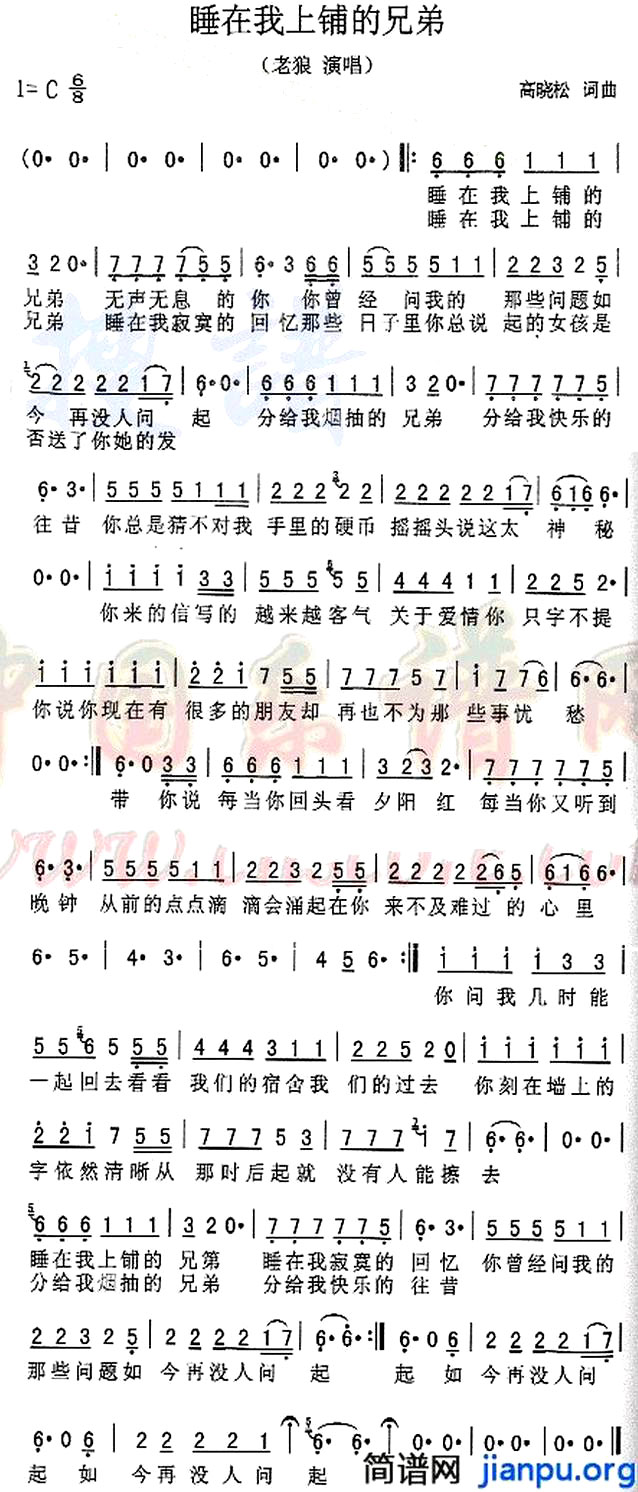 睡在我上铺的兄弟
（老狼 演唱）
1=C 6/8
高晓松 词曲
(0· 0· | 0· 0· | 0· 0· | 0· 0· ) ‖: 6 6 6 1 1 1 |
睡 在 我 上 铺 的
睡 在 我 上 铺 的
3 2 0· | 7 7 7 7 5 5 | 6· 3 6 6 | 5 5 5 5 1 1 | 2 2 3 2 5
兄弟 无声无息 的 你 你曾 经 问我的 那些问题如
兄弟 睡在我寂寞的 回 忆那些 日子里你总说 起的女孩是
2 2 2 2 2 1 7 | 6· 0· | 6 6 6 1 1 1 | 3 2 0· | 7 7 7 7 7 5 |
今 再没人问 起 分给我烟抽的 兄弟 分给我快乐的
否送了你她的发
6· 3· | 5 5 5 5 1 1 1 | 2 2 2 2 2 | 2 2 2 2 2 1 7 | 6 1 6 6· |
往昔 你总是猜不对我 手里的硬币 摇摇头说这太 神 秘
0· 0· | 1 1 1 1 3 3 | 5 5 5 5 5 | 4 4 4 4 1 1 | 2 2 5 2· |
你来的信写的 越来越客气 关于爱情你 只字不提
1 1 1 1 1 1 | 2 2 1 7 5 5 | 7 7 7 7 5 | 1 7 7 6 | 6· 6· |
你说你现在有 很多的朋友却 再也不为那 些事忧 愁
0· 0· :‖ 6· 0 3 3 | 6 6 6 1 1 1 | 3 2 3 2· | 7 7 7 7 7 5 |
带 你说 每当你回头看 夕阳 红 每当你又听到
6· 3· | 5 5 5 5 1 1 | 2 2 2 3 2 5 5 | 2 2 2 2 2 6 5 | 6 1 6 6· |
晚钟 从前的点点滴 滴会涌起在你 来不及难过 的 心 里
6· 5· | 4· 3· | 6· 5· | 4 5 6· :‖ 1 1 1 1 3 3 |
你 问 我 几 时 能
5 5 6 5 5 5 | 4 4 4 3 1 1 | 2 2 5 2 0 | 1 1 1 1 1 1 |
一起回去看看 我们的宿舍我 们的过去 你刻在墙上的
2 2 1 7 5 5 | 7 7 7 7 5 | 7 7 7 1 7 | 6· 6· | 0· 0· |
字依然清晰从 那时后起就 没有人能擦 去
6 6 6 1 1 1 | 3 2 0· | 7 7 7 7 7 5 | 6· 3· | 5 5 5 5 1 1 |
睡在我上铺的 兄弟 睡在我寂寞的 回 忆 你曾经问我的
分给我烟抽的 兄弟 分给我快乐的 往昔
2 2 3 2 5 | 2 2 2 2 2 1 7 | 6· 6· :‖ 6· 0 6 | 2 2 2 2 1 7 |
那些问题如 今再没人问 起 起 如 今再没人问
6· 0 6 | 2 2 2 2 1 7 | 6· 6· | 0· 0· | 0· 0· ‖
起 如 今再没人问 起
简谱网 jianpu.org